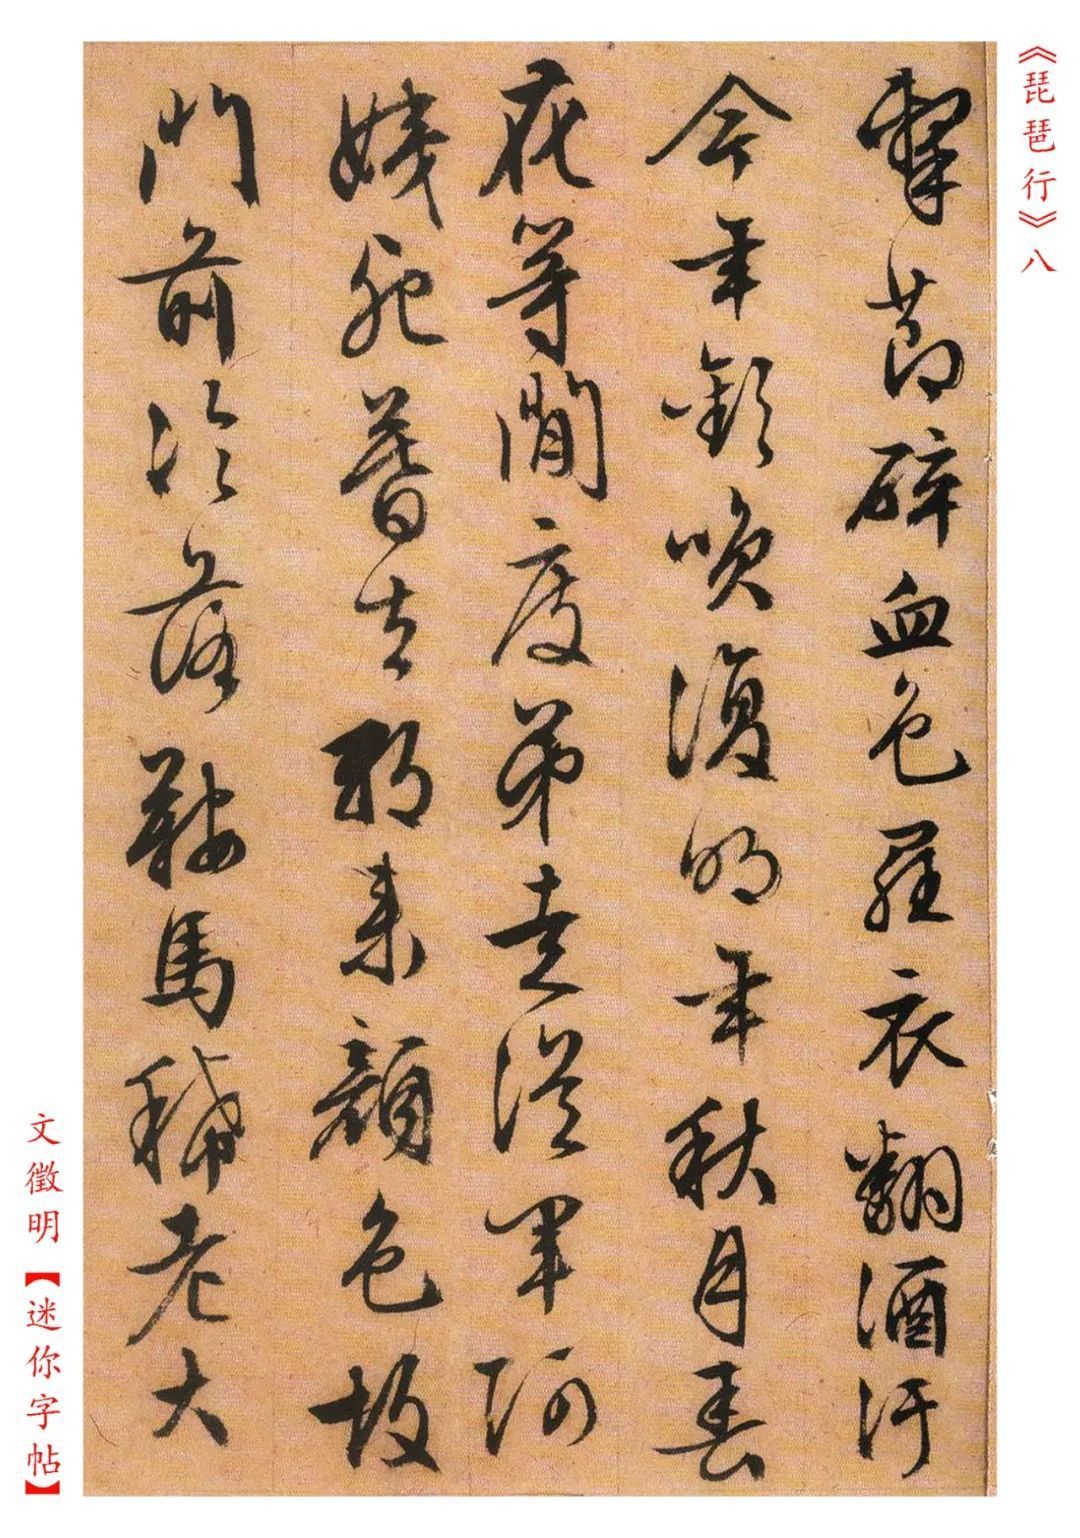 《琵琶行》八
擊節碎血色羅衣翻酒汙
今年歡咲復明年秋月春
花等閒度弟走從軍阿
姨死暮去朝來顏色故
門前冷落鞍馬稀老大
文徵明【迷你字帖】